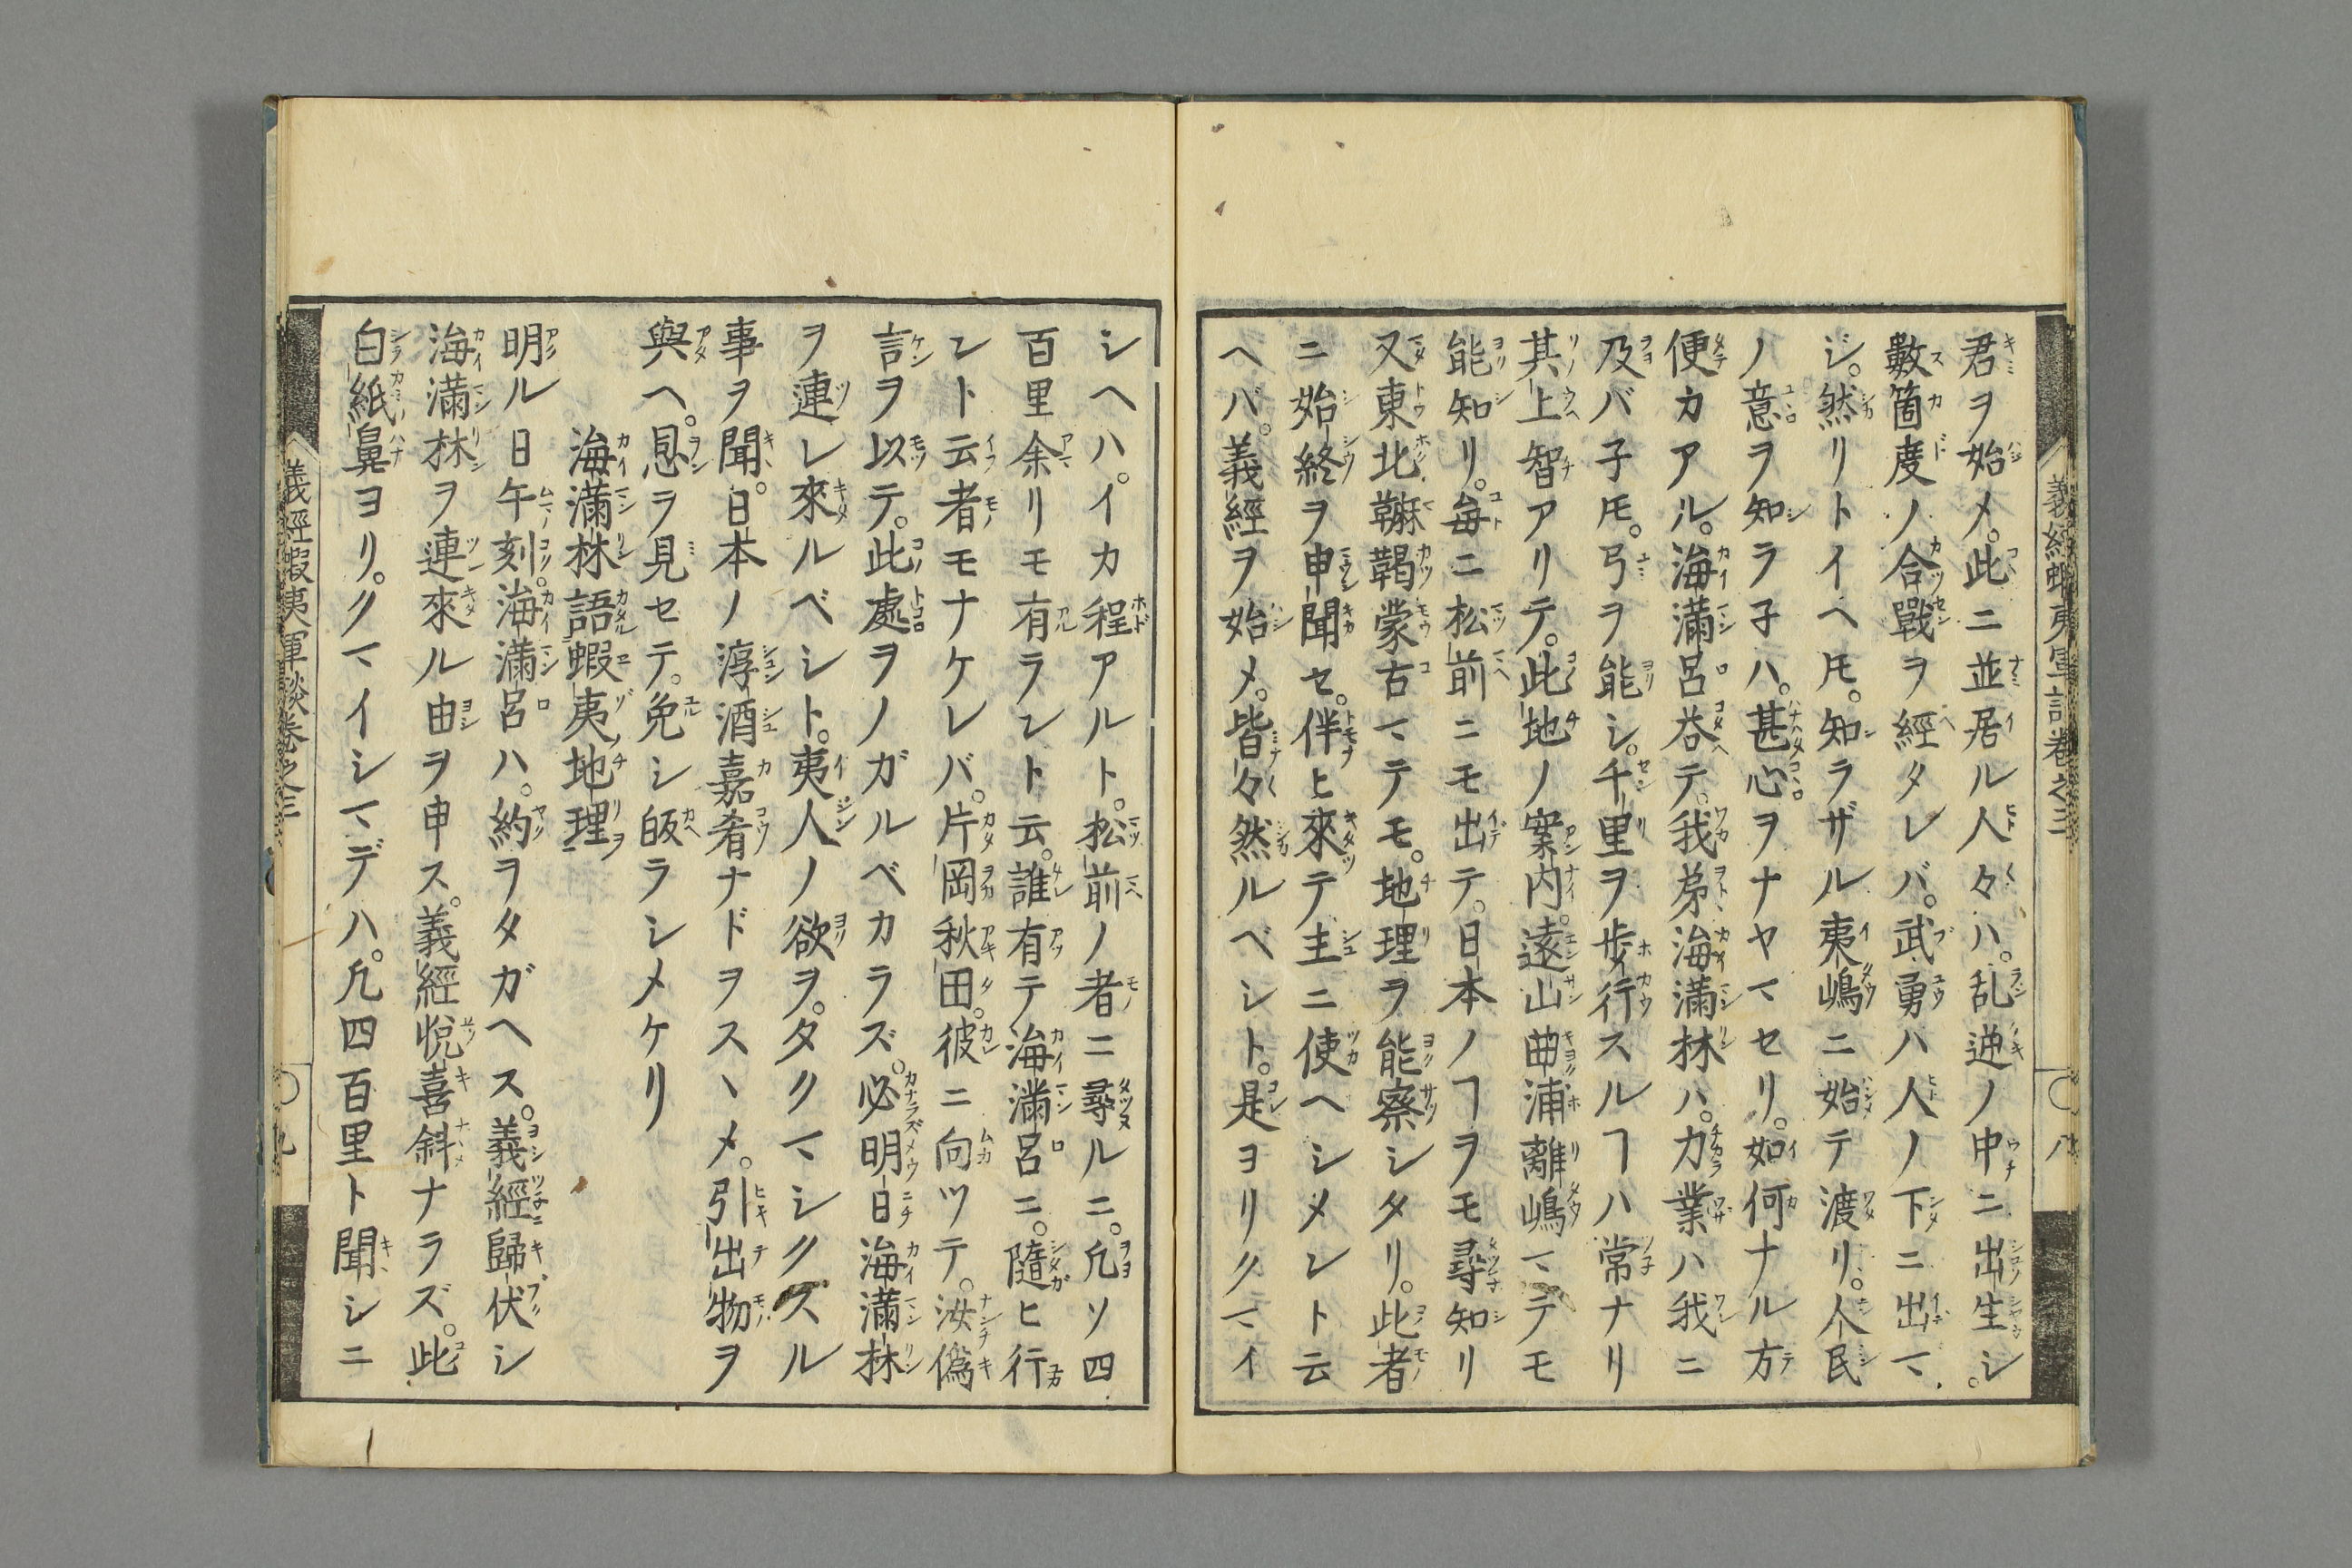 義經蝦夷軍談卷之三
〇八
君ヲ始メ。此ニ並居ル人々ハ。乱逆ノ中ニ出生シ。
數箇度ノ合戰ヲ經タレバ。武勇ハ人ノ下ニ出マ
ジ。然リトイヘ𪜈。知ラザル夷嶋ニ始テ渡リ。人民
ノ意ヲ知ラ子ハ。甚心ヲナヤマセリ。如何ナル方
便カアル。海滿呂荅テ。我弟海滿林ハ。力業ハ我ニ
及バ子𪜈。弓ヲ能シ。千里ヲ歩行スルヿハ常ナリ
其上智アリテ。此地ノ案内。遠山曲浦離嶋マテモ
能知リ。毎ニ松前ニモ出テ。日本ノヿヲモ尋知リ
又東北靺鞨蒙古マテモ。地理ヲ能察シタリ。此者
ニ始終ヲ申聞セ。伴ヒ來テ主ニ使ヘシメント云
ヘバ。義經ヲ始メ。皆々然ルベシト。是ヨリクマイ
シヘハ。イカ程アルト。松前ノ者ニ尋ルニ。凢ソ四
百里余リモ有ラント云。誰有テ海滿呂ニ。隨ヒ行
ント云者モナケレバ。片岡秋田。彼ニ向ツテ。汝僞
言ヲ以テ。此處ヲノガルベカラズ。必明日海滿林
ヲ連レ來ルベシト。夷人ノ欲ヲ。タクマシクスル
事ヲ聞。日本ノ淳酒嘉肴ナドヲスヽメ。引出物ヲ
與ヘ。恩ヲ見セテ。免シ皈ラシメケリ
海滿林語蝦夷地理
明ル日午刻。海滿呂ハ。約ヲタガヘス。義經歸伏シ
海滿林ヲ連來ル由ヲ申ス。義經悅喜斜ナラズ。此
白紙鼻ヨリ。クマイシマデハ。凢四百里ト聞シニ
義經蝦夷軍談卷之三
〇九